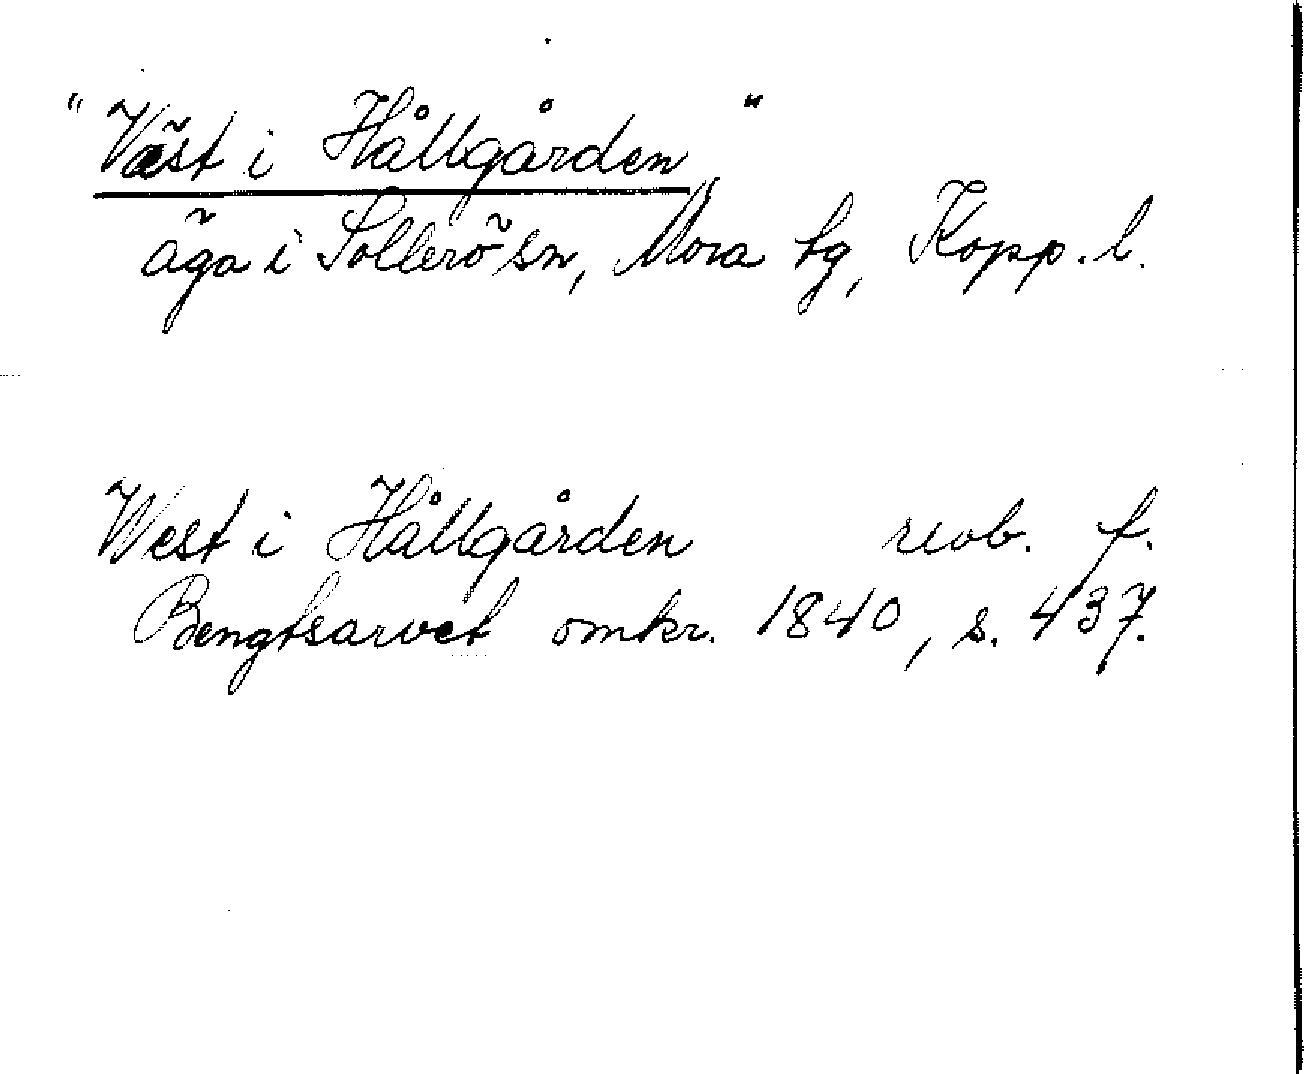 "Väst i Hållgården"
äga i Sollerö sn, Mora tg, Kopp. l.
West i Hållgården revb. f.
Bengtsarvet omkr. 1840, s. 437.